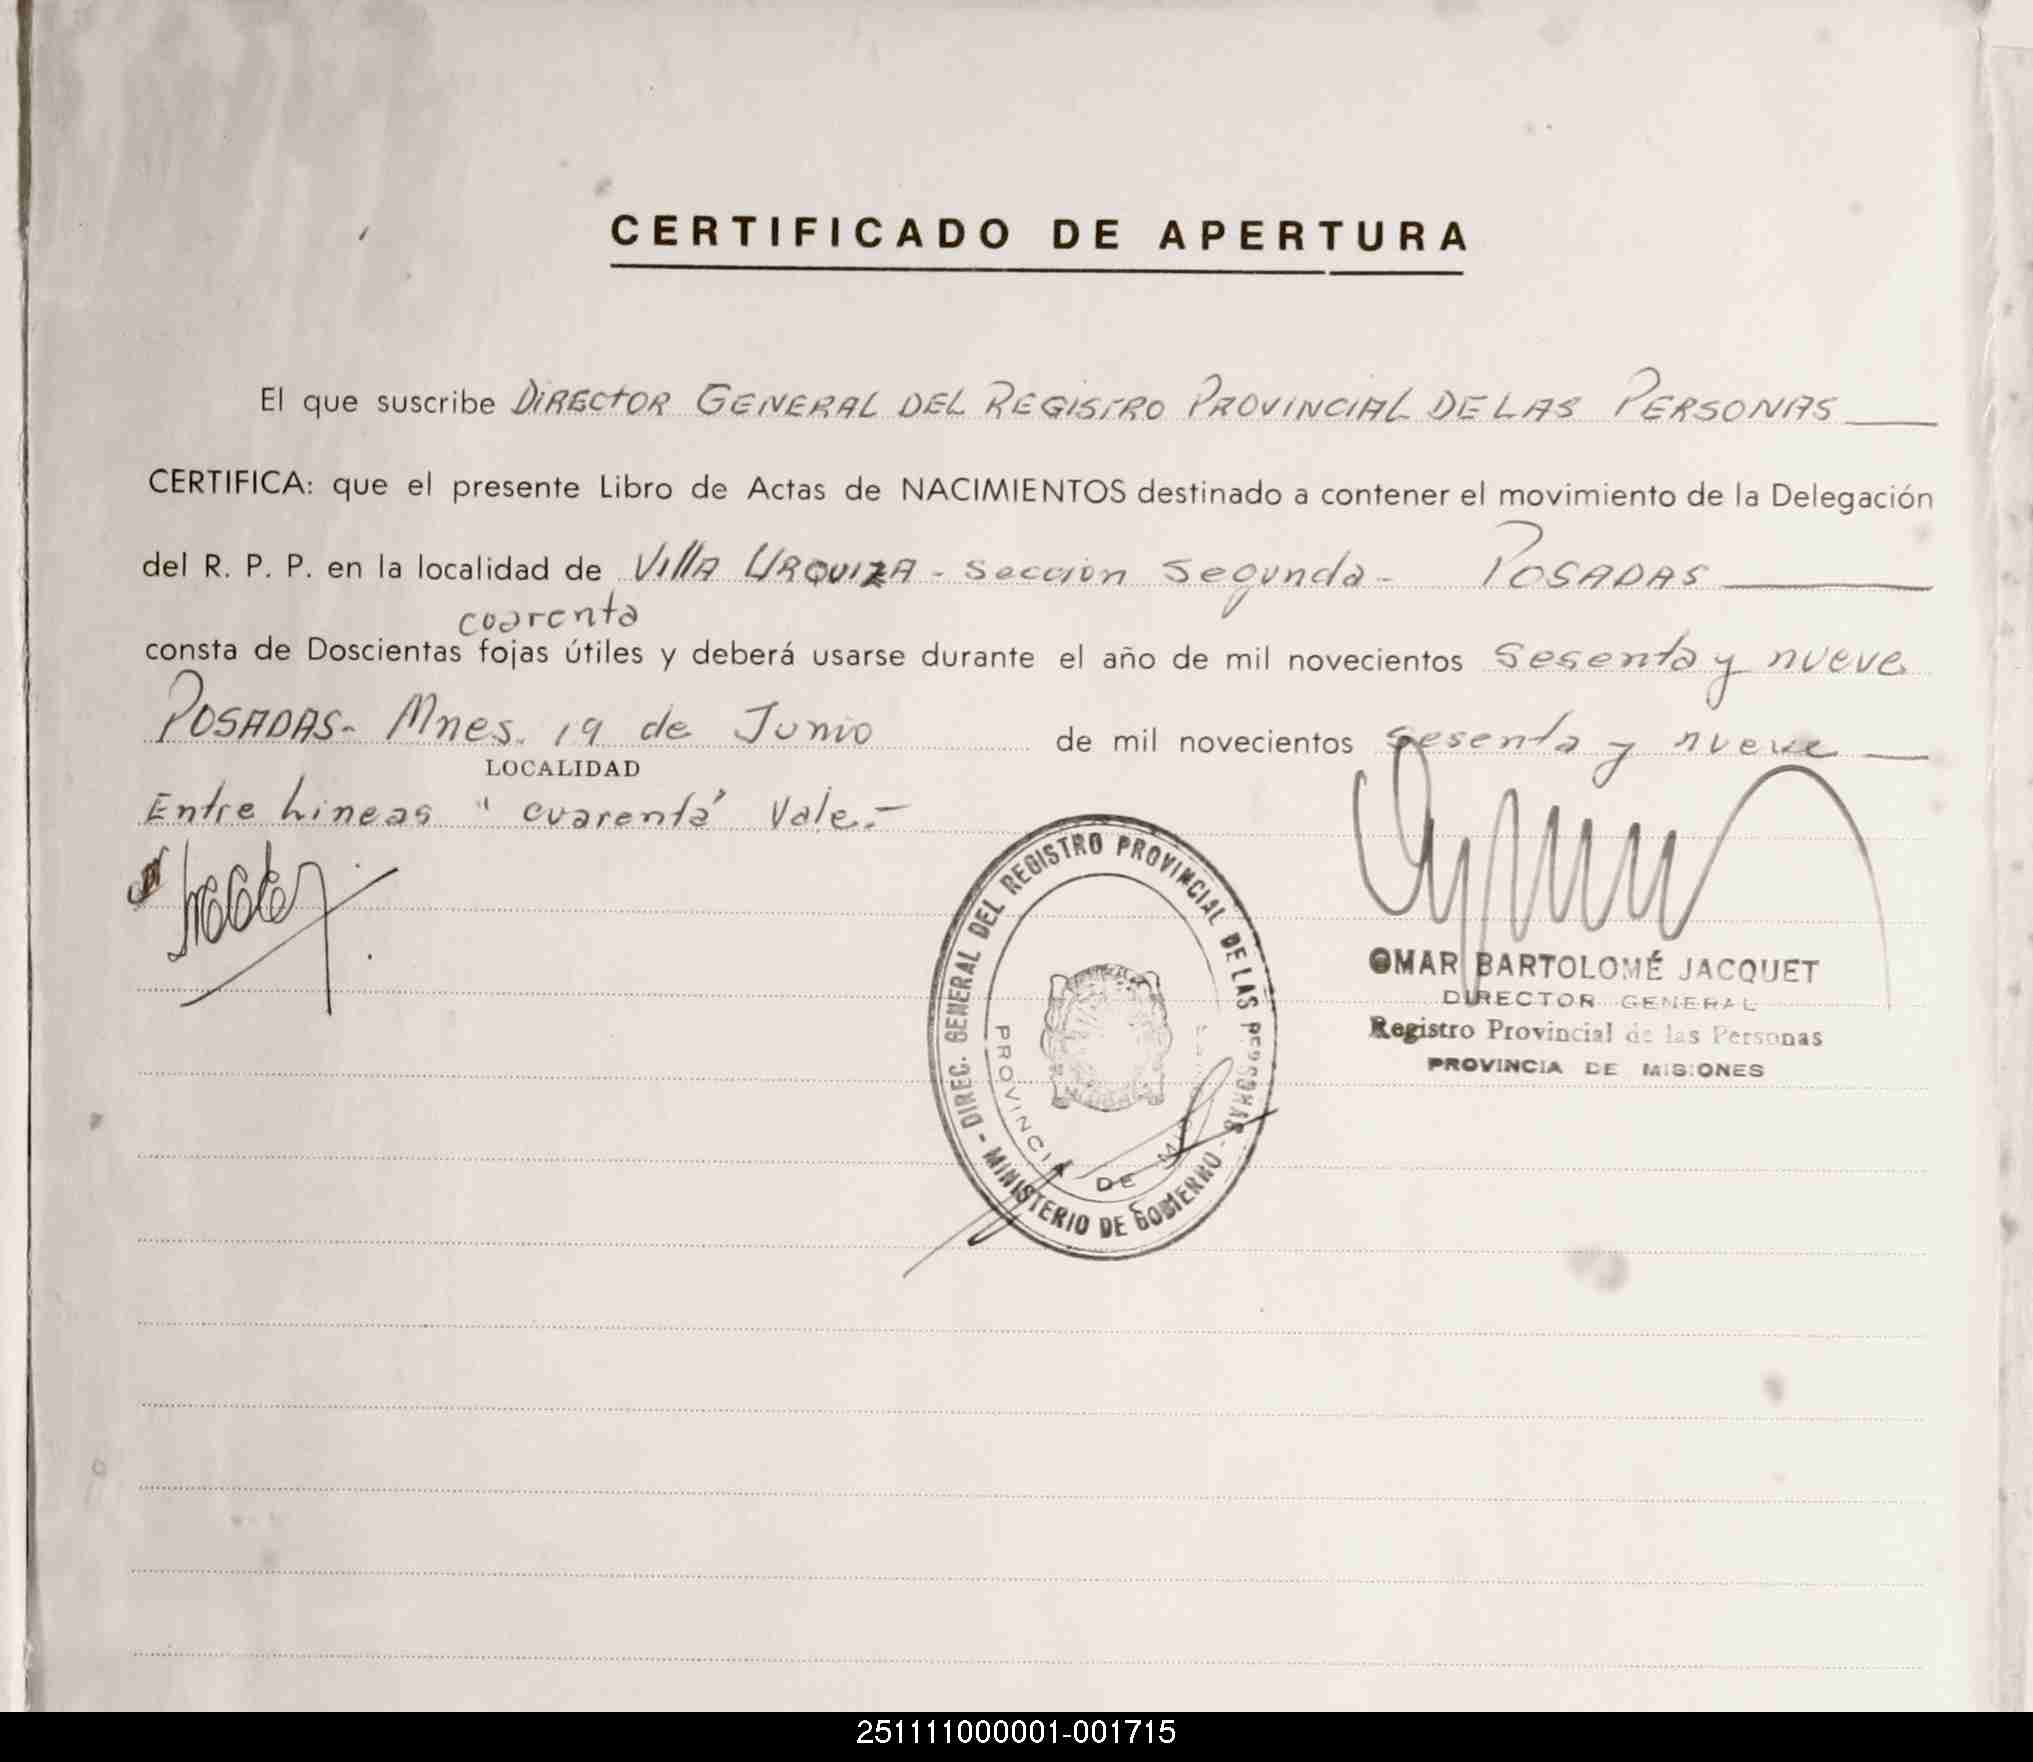 CERTIFICADO DE APERTURA
El que suscribe DIRECTOR GENERAL DEL REGISTRO PROVINCIAL DE LAS PERSONAS
CERTIFICA: que el presente Libro de Actas de NACIMIENTOS destinado a contener el movimiento de la Delegación
del R. P. P. en la localidad de Villa URQUIZA - Sección Segunda - POSADAS
cuarenta
consta de Doscientas fojas útiles y deberá usarse durante el año de mil novecientos sesenta y nueve
POSADAS - Mnes. 19 de Junio de mil novecientos sesenta y nueve
LOCALIDAD
Entre Lineas "cuarenta" Vale.-
DIREC. GENERAL DEL REGISTRO PROVINCIAL DE LAS PERSONAS - MINISTERIO DE GOBIERNO -
PROVINCIA DE
OMAR BARTOLOMÉ JACQUET
DIRECTOR GENERAL
Registro Provincial de las Personas
PROVINCIA DE MISIONES
251111000001-001715